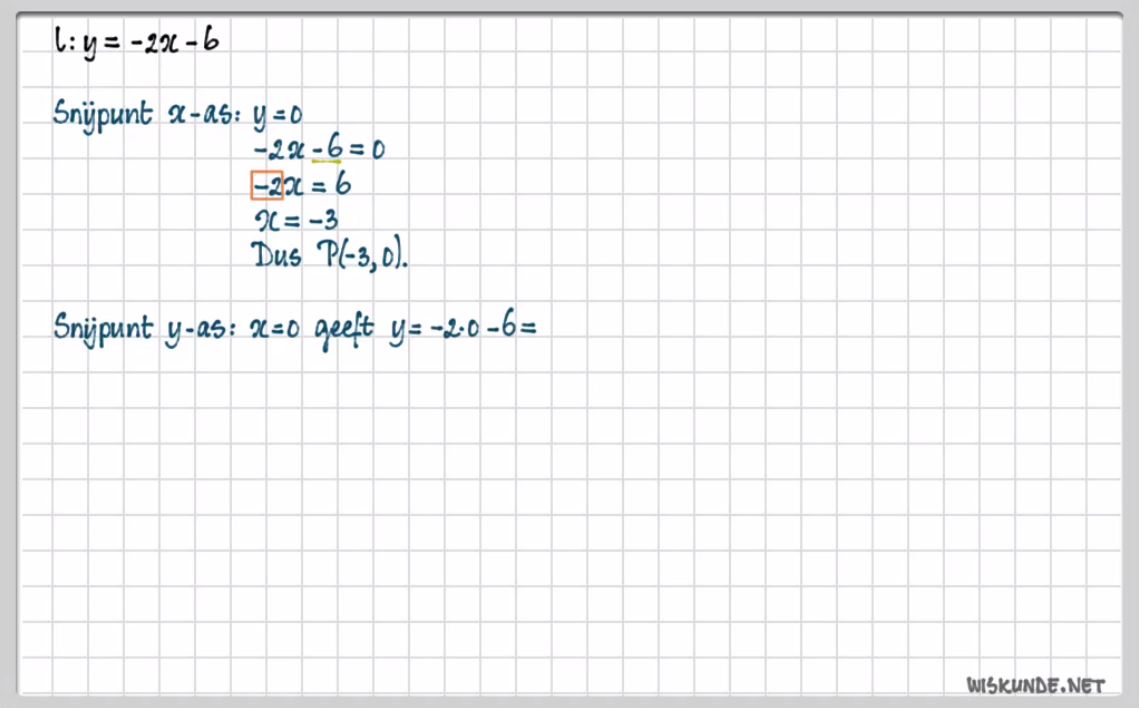 l: y = -2x - 6
Snijpunt x-as: y = 0
-2x - 6 = 0
-2x = 6
x = -3
Dus P(-3, 0).
Snijpunt y-as: x = 0 geeft y = -2·0 - 6 =
WISKUNDE.NET